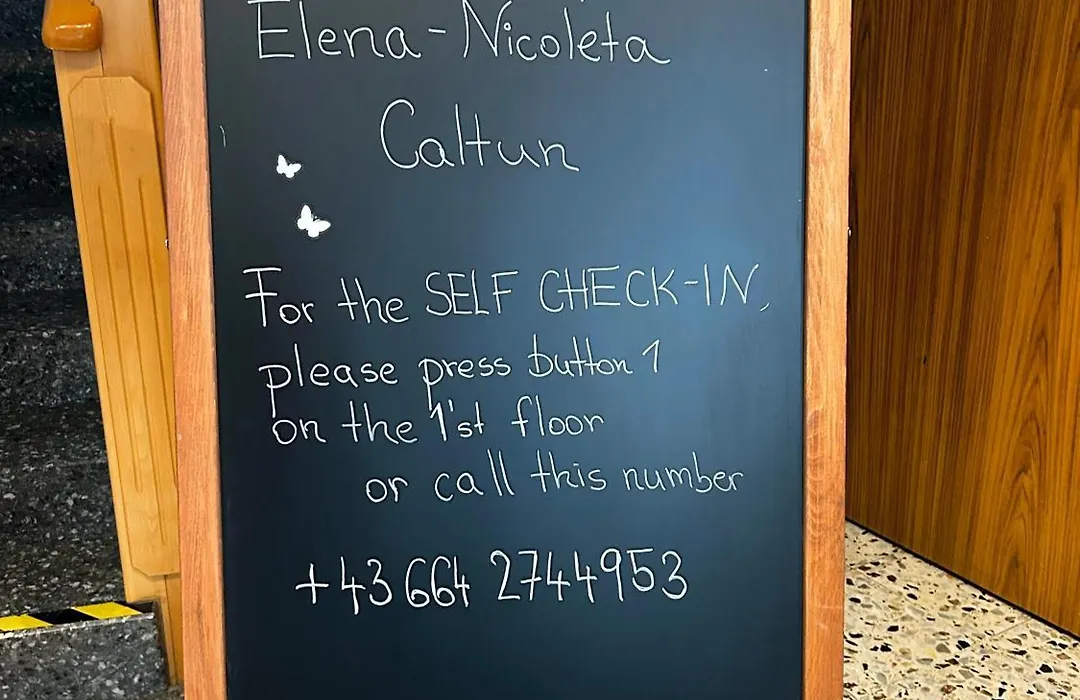 Elena-Nicoleta
Caltun
For the SELF CHECK-IN,
please press button 1
on the 1'st floor
or call this number
+43 664 2744953